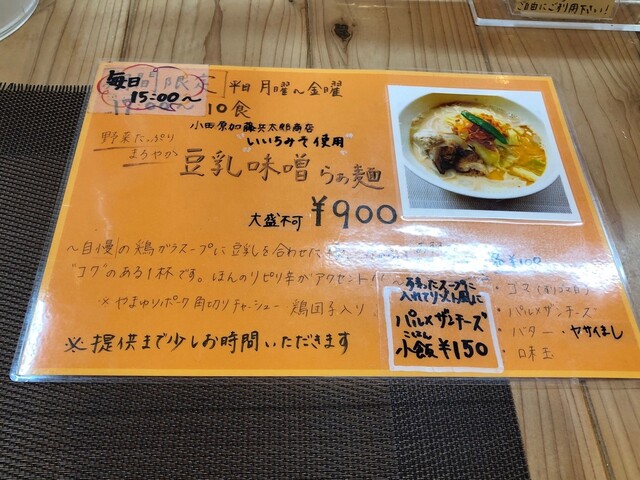 ご自由にご利用下さい!
毎日
15:00〜
間限定
平日 月曜〜金曜
10食
小田原加藤兵太郎商店
"いいちみそ使用"
野菜たっぷり
まろやか
豆乳味噌らぁ麺
大盛不可 ¥900
〜自慢の鶏ガラスープに豆乳を合わせた
"コク"のある1杯です。ほんのりピリ辛がアクセント!!〜
※やまゆりポーク角切りチャーシュー 鶏団子入り
※提供まで少しお時間いただきます
各¥100
・ゴマ
・パルメザンチーズ
・バター・ヤサイまし
・味玉
あまったスープに
入れてリゾット風に
パルメザンチーズ
こはん
小飯¥150